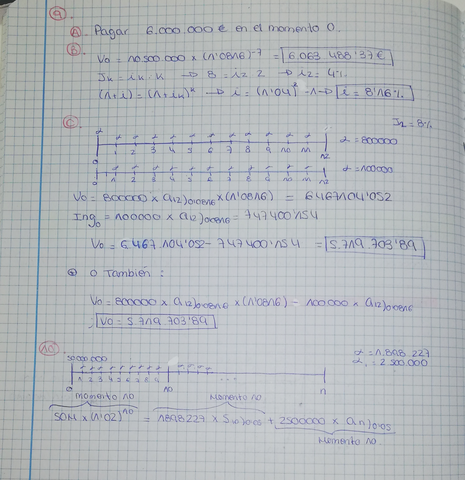 9.
A. Pagar 6.000.000 € en el momento 0.
B.
V0 = 10.500.000 x (1'0816)^-7 = 6.063.488'37€
Jk = ik · k → 8 = i2 · 2 → i2 = 4%
(1+i) = (1+ik)^k → i = (1'04)^2 - 1 → i = 8'16%
C. J2 = 8%
α α α α α α α α α α α α α = 800000
0 1 2 3 4 5 6 7 8 9 10 11 12
α = 100000
0 1 2 3 4 5 6 7 8 9 10 11 12
V0 = 800000 x a12⌉0'0816 x (1'0816) = 6467104'052
Ing0 = 100000 x a12⌉0'0816 = 747400'154
V0 = 6.467.104'052 - 747400'154 = 5.719.703'89
O También :
V0 = 800000 x a12⌉0'0816 x (1'0816) - 100000 x a12⌉0'0816
V0 = 5.719.703'89
10.
50000.000 α = 1.898.227
α1 = 2.500.000
0 1 2 3 4 5 6 7 8 9 10 ... n
momento 10 Momento 10
50M x (1'02)^10 = 1898227 x S10⌉0'05 + 2500000 x an⌉0'05
Momento 10